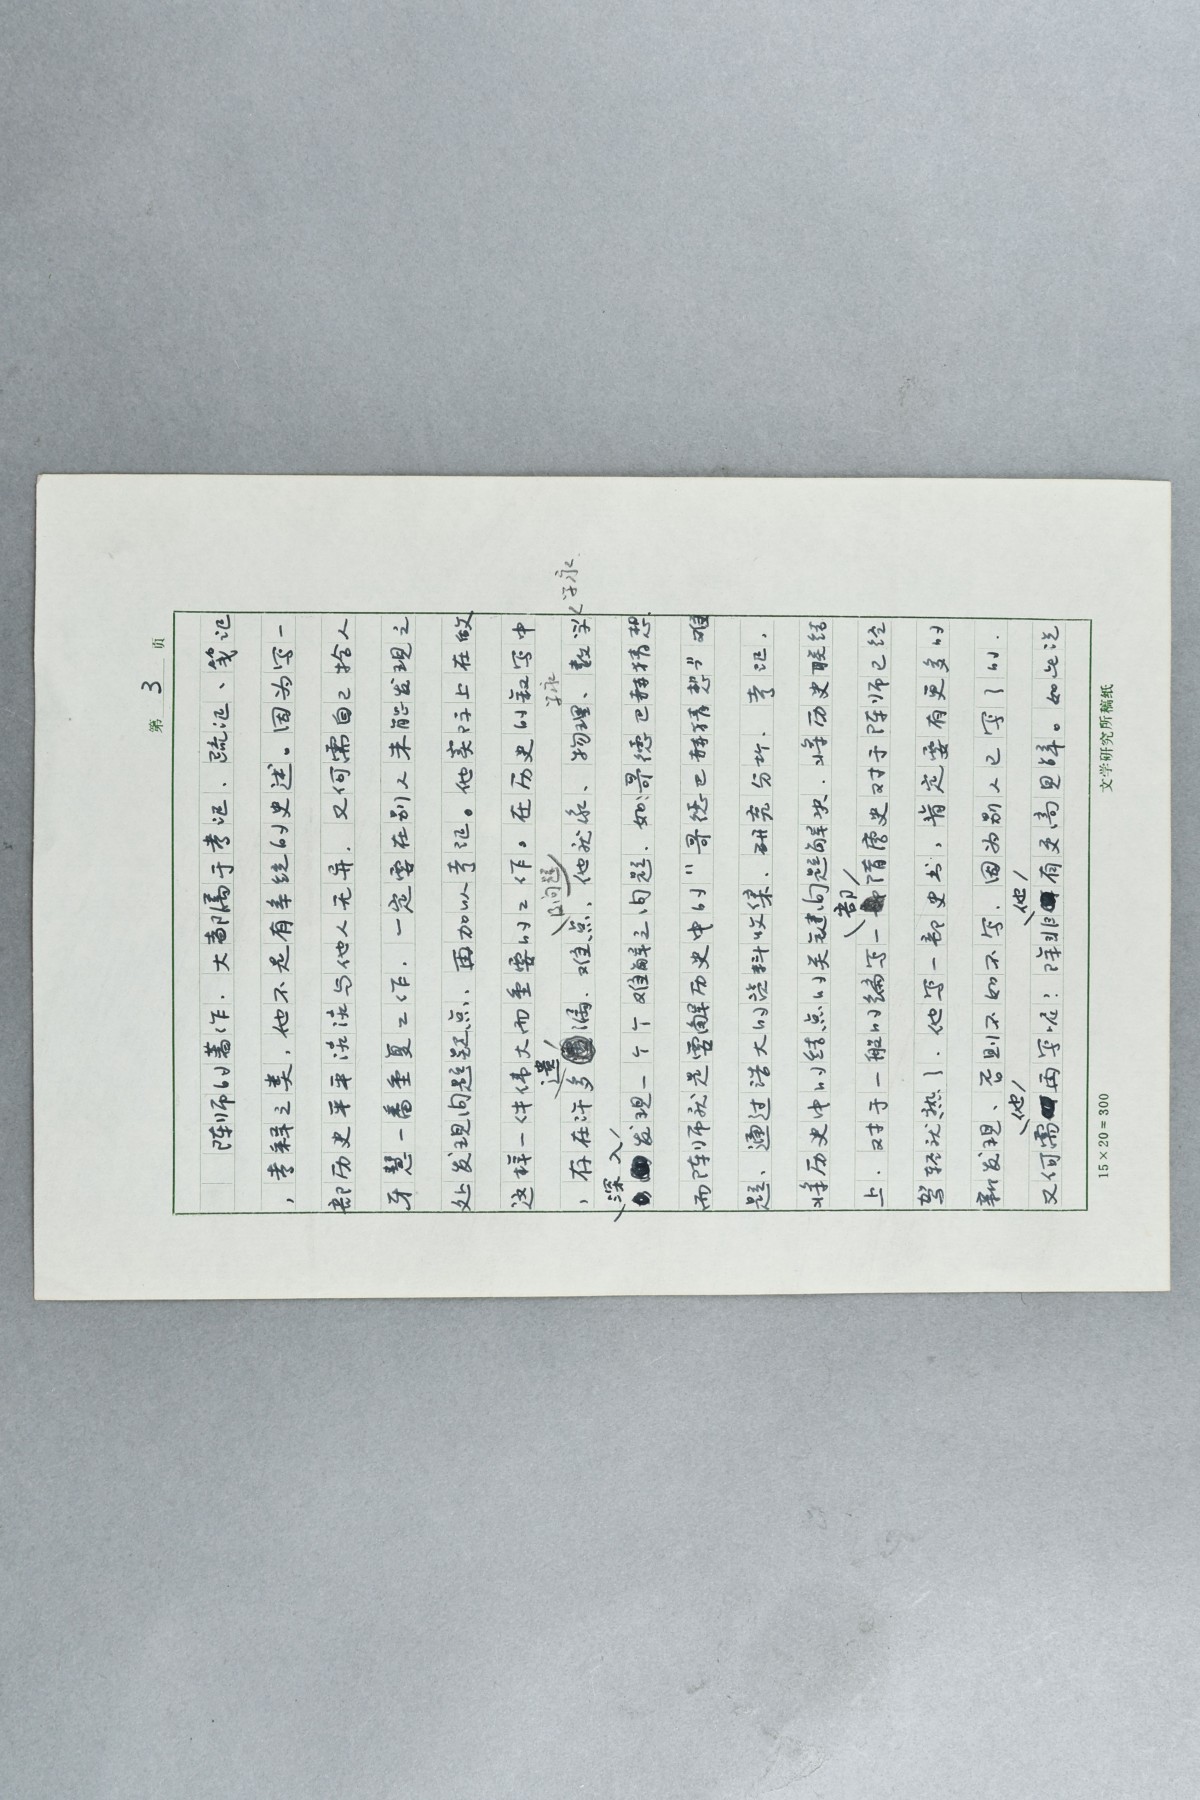 第 3 页
陈师的著作，大都属于考证、疏证、笺证
，考释之类，他不是有系统的史述。因为写一
部历史平平流流与他人无异，又何需自己拾人
牙慧一番重复工作，一定要在别人未能发现之
处发现问题疑点，再加以考证。他实际上在做
这样一件伟大而重要的工作。在历史的叙写中
，存在许多遗漏、难点、问题
他就象、物理、数学
深入发现一个个难解之问题，如哥德巴赫猜想
而陈师就是要解历史中的"哥德巴赫猜想"难
题、通过浩大的资料收集、研究分析、考证，
将历史中的结点的关键问题解决，将历史联结
上，对于一般的编写一部隋唐史对于陈师已经
驾轻就熟了，他写一部史书，肯定要有更多的
新发现、否则不如不写，因为别人已写了的，
又何需他再写呢；除非他有更高见解。如此说
15×20=300
文学研究所稿纸